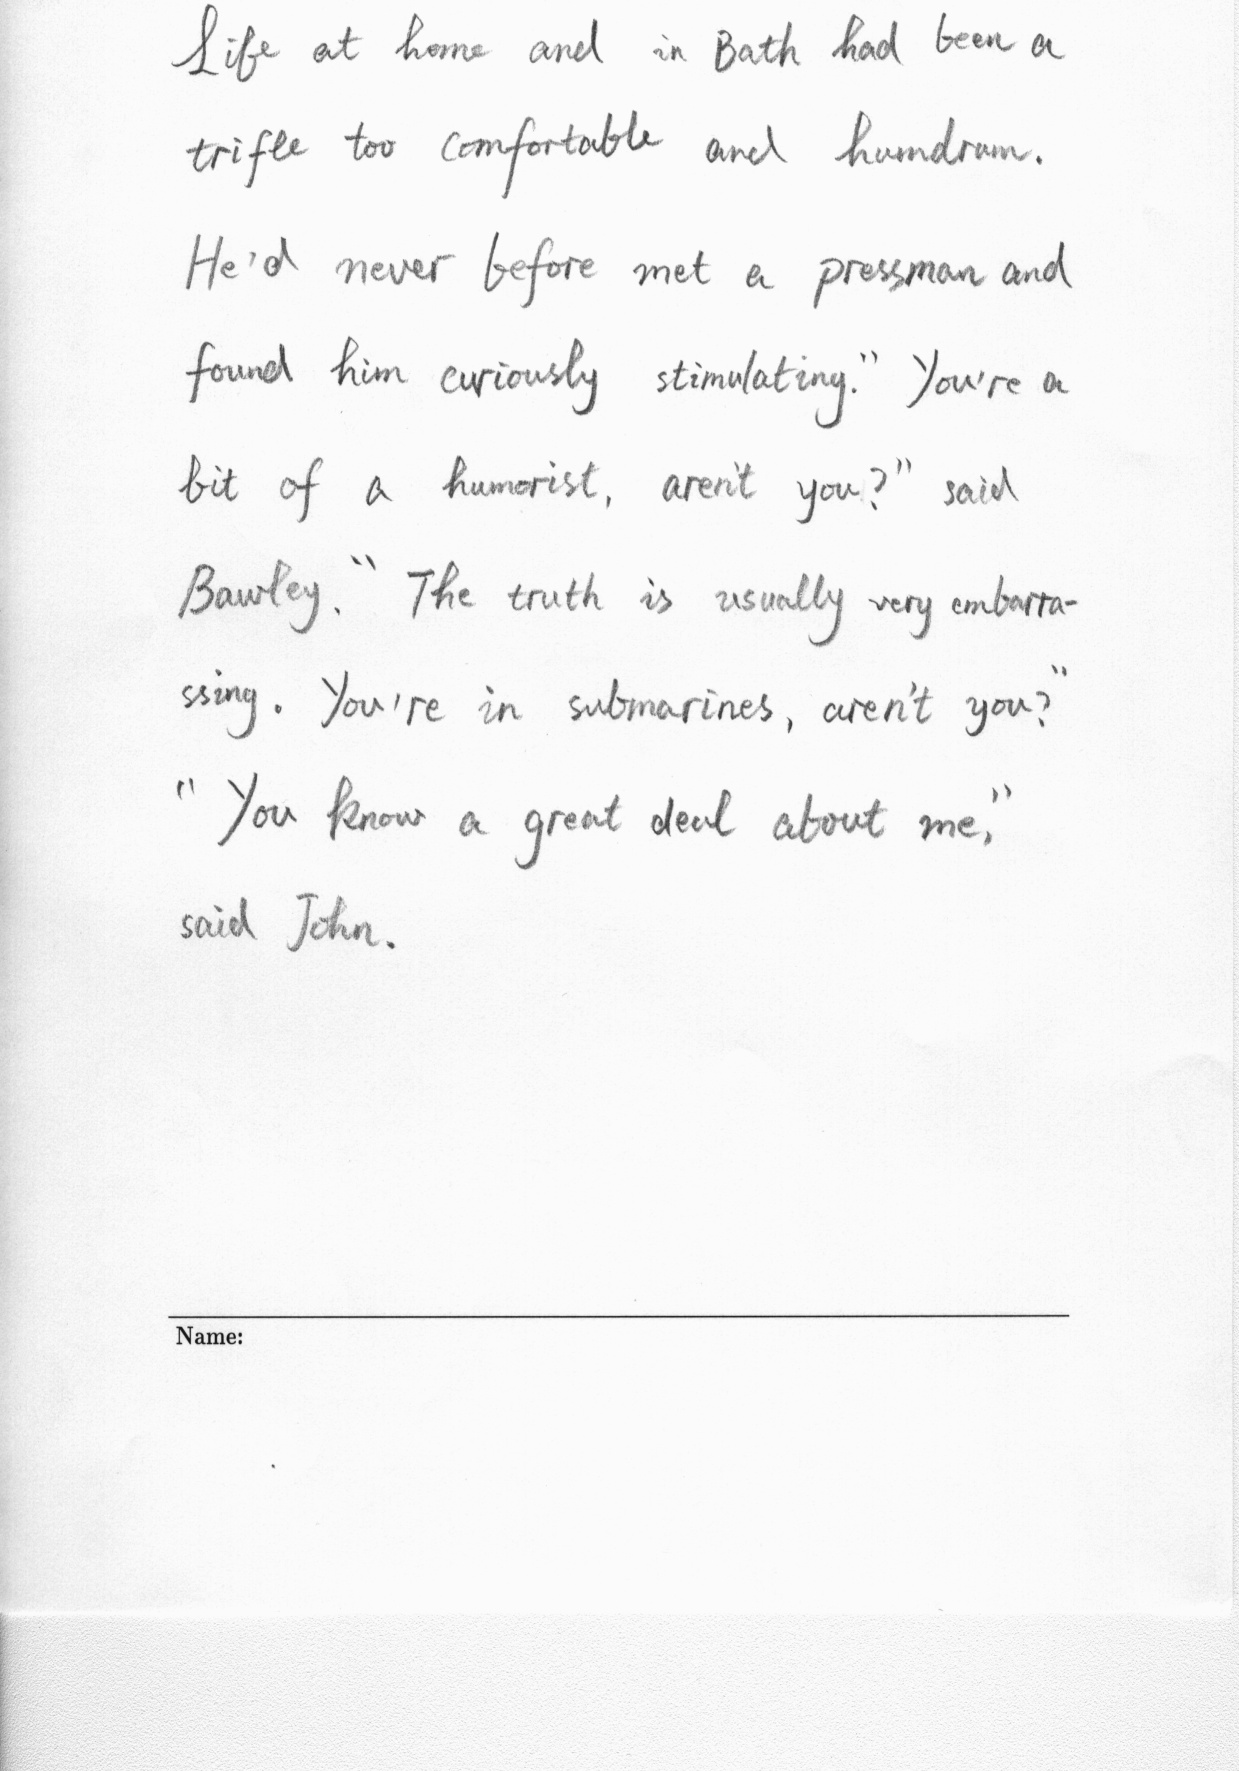 Life at home and in Bath had been a
trifle too comfortable and humdrum.
He'd never before met a pressman and
found him curiously stimulating." You're a
bit of a humorist, aren't you?" said
Bawley." The truth is usually very embarra-
ssing. You're in submarines, aren't you?"
"You know a great deal about me,"
said John.
Name: